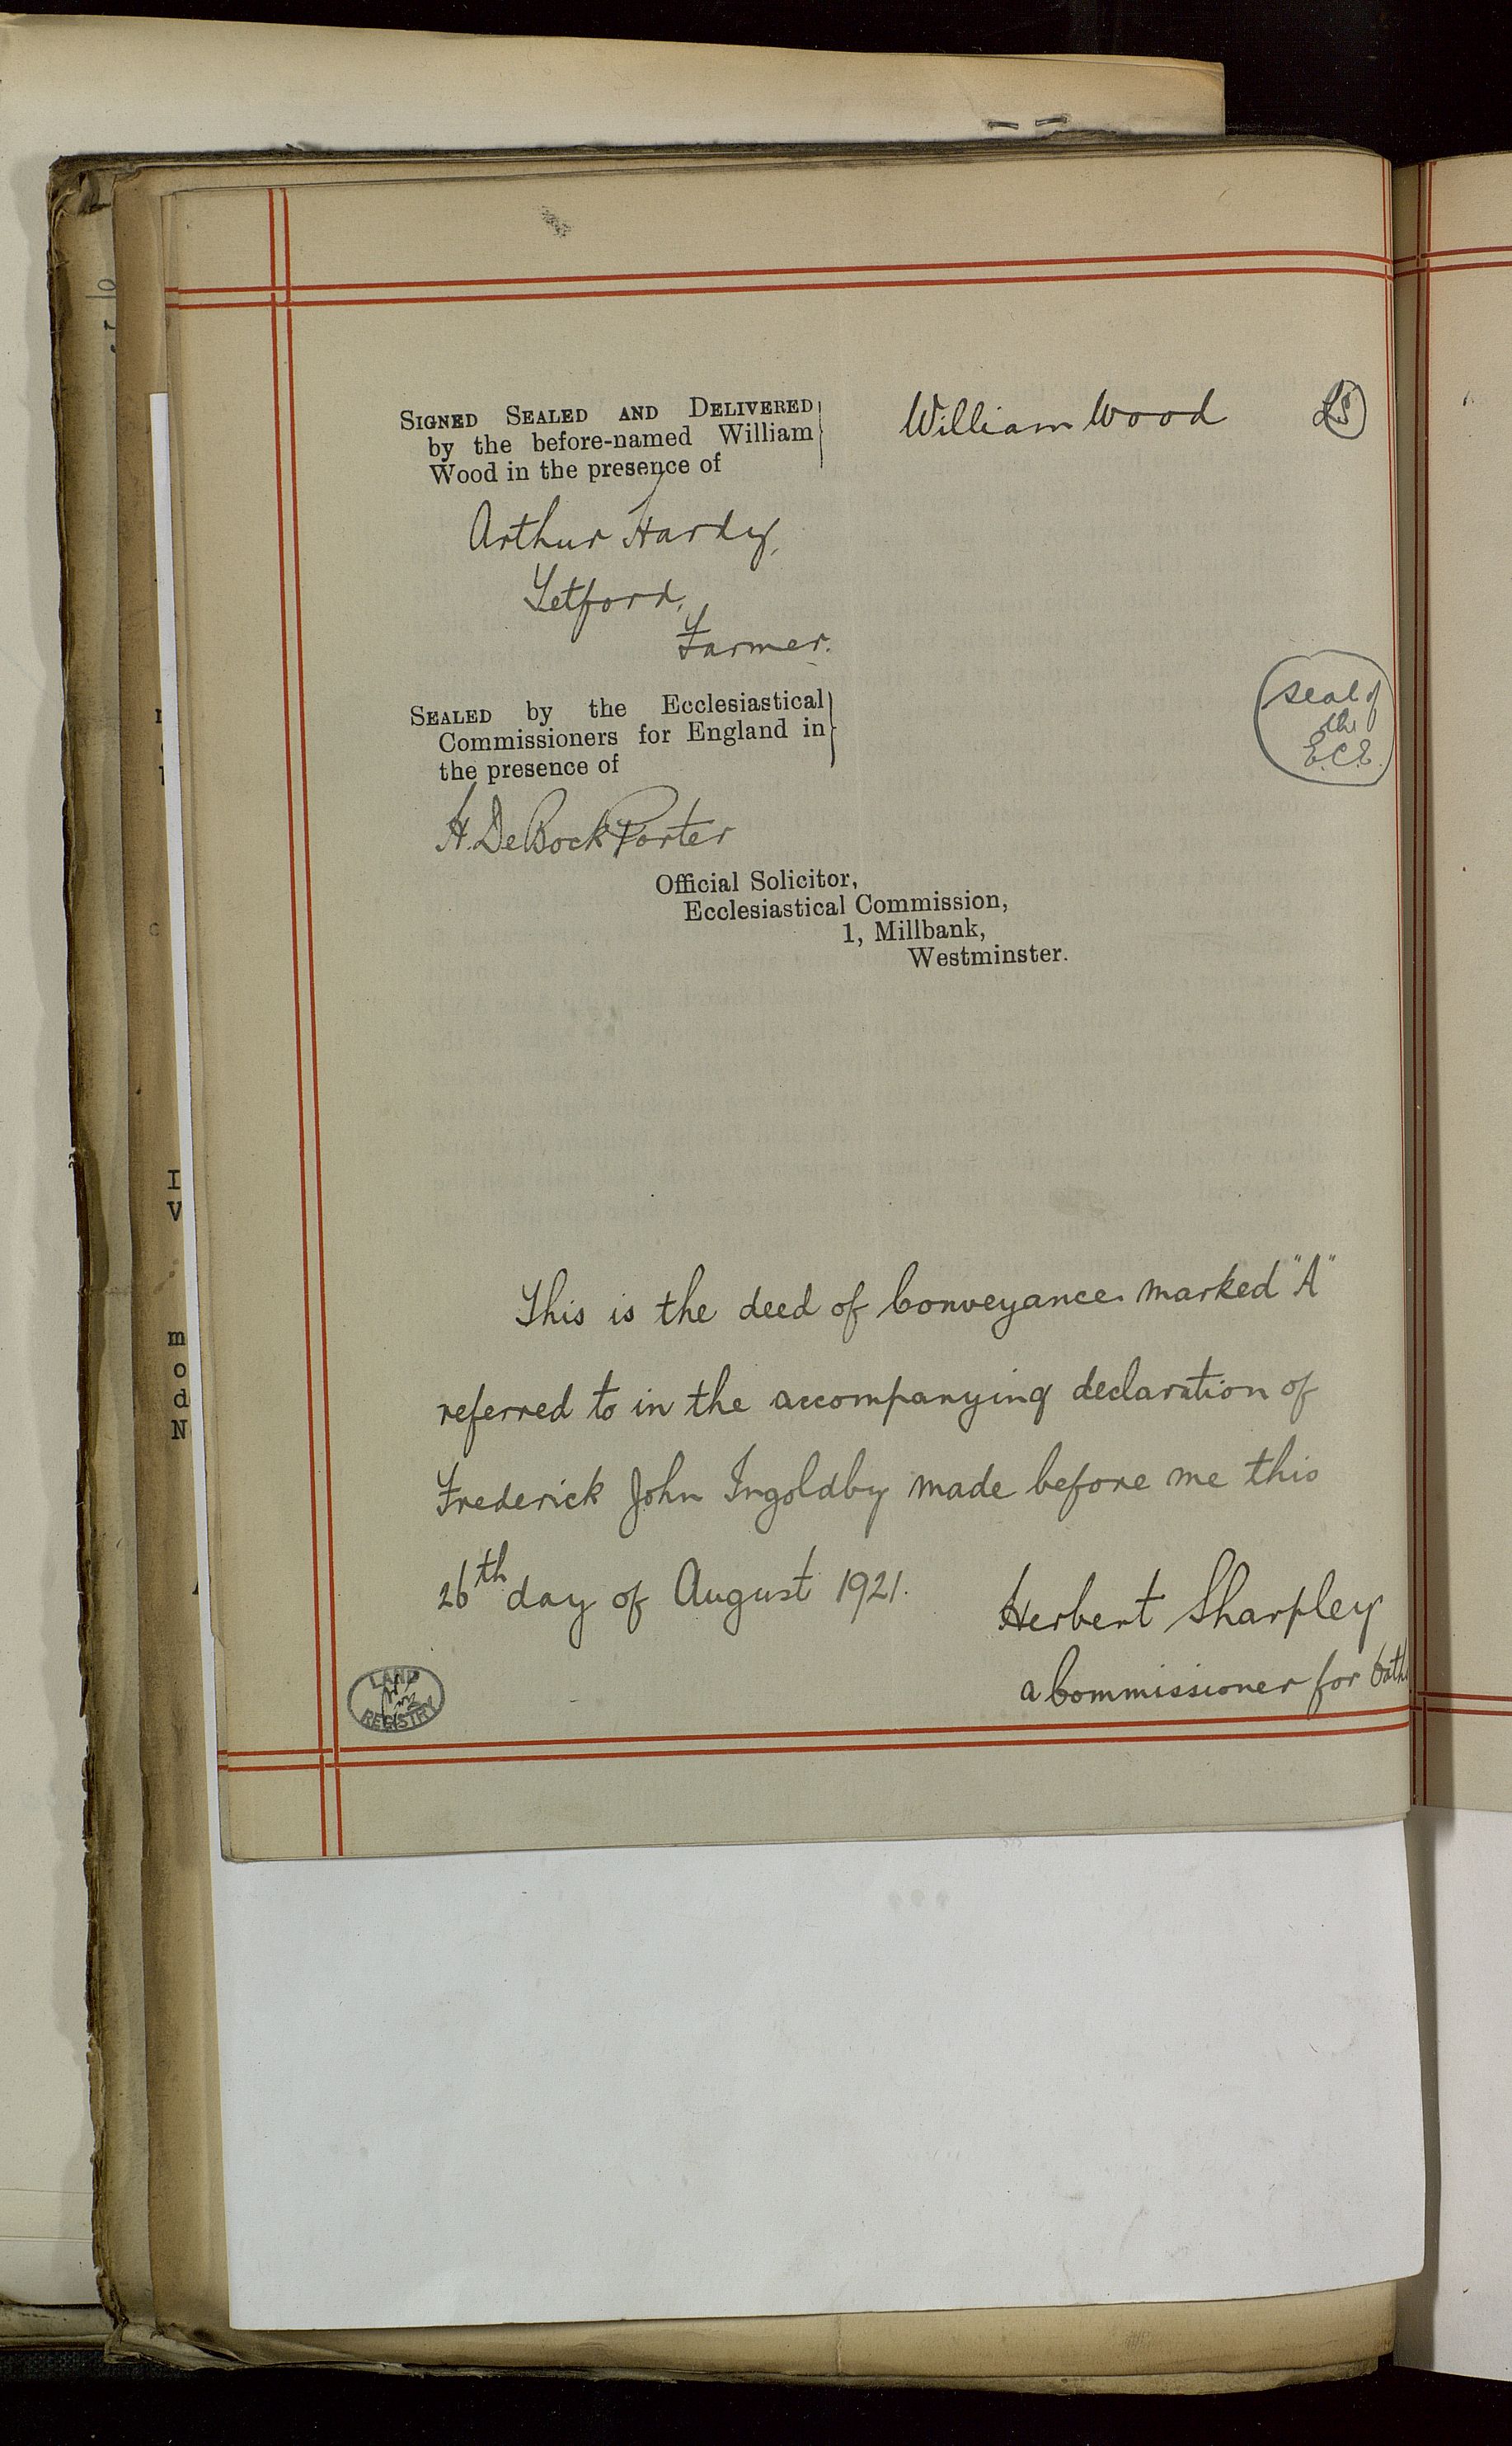 SIGNED SEALED AND DELIVERED
by the before-named William
Wood in the presence of
William Wood
LS
Arthur Hardy,
Tetford,
Farmer.
SEALED by the Ecclesiastical
Commissioners for England in
the presence of
seal of
the
E.C.E.
H. De Bock Porter
Official Solicitor,
Ecclesiastical Commission,
1, Millbank,
Westminster.
This is the deed of Conveyance marked "A"
referred to in the accompanying declaration of
Frederick John Ingoldby made before me this
26th day of August 1921.
Herbert Sharpley
a Commissioner for Oaths
LAND
REGISTRY
I
V
m
o
d
N